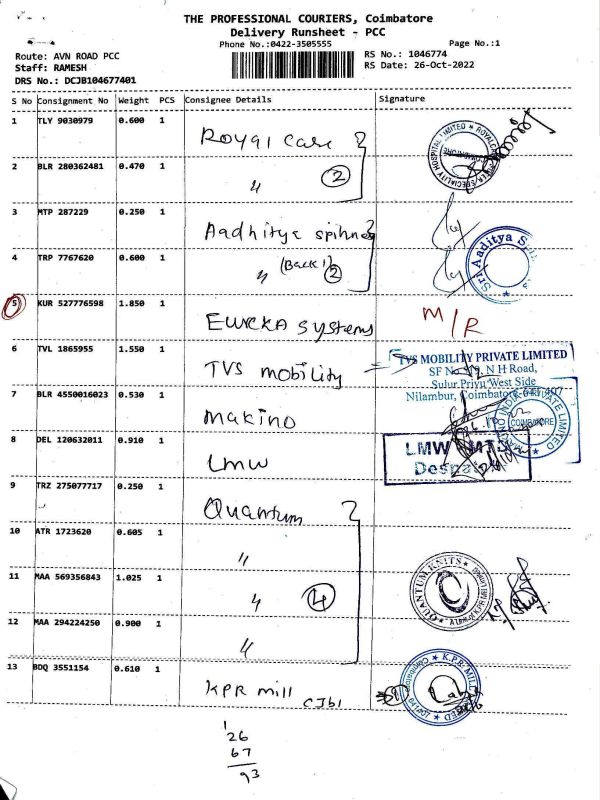 THE PROFESSIONAL COURIERS, Coimbatore
Delivery Runsheet - PCC
Phone No.:0422-3505555
Page No.:1
Route: AVN ROAD PCC
Staff: RAMESH
DRS No.: DCJB104677401
RS No.: 1046774
RS Date: 26-Oct-2022
S No Consignment No Weight PCS Consignee Details Signature
1 TLY 9030979 0.600 1 Royal Care
2 BLR 280362481 0.470 1 " 2
3 MTP 287229 0.250 1 Aadhitya spinne
4 TRP 7767620 0.600 1 " (Back 1) 2
Sri Aaditya
5 KUR 527776598 1.850 1 EURKA systems M/R
6 TVL 1865955 1.550 1 TVS mobility
TVS MOBILITY PRIVATE LIMITED
N H Road,
West Side
Nilambur, Coimbatore-641 407
7 BLR 4550016023 0.530 1 makino
COIMBATORE
8 DEL 120632011 0.910 1 Lmw
LMW MTS
9 TRZ 275077717 0.250 1 Quantum
10 ATR 1723620 0.605 1 "
11 MAA 569356843 1.025 1 " 4
QUANTUM KNITS
12 MAA 294224250 0.900 1 "
13 BDQ 3551154 0.610 1 KPR mill CJb1
K.P.R. MILL
Coimbatore
641407
1
26
67
93